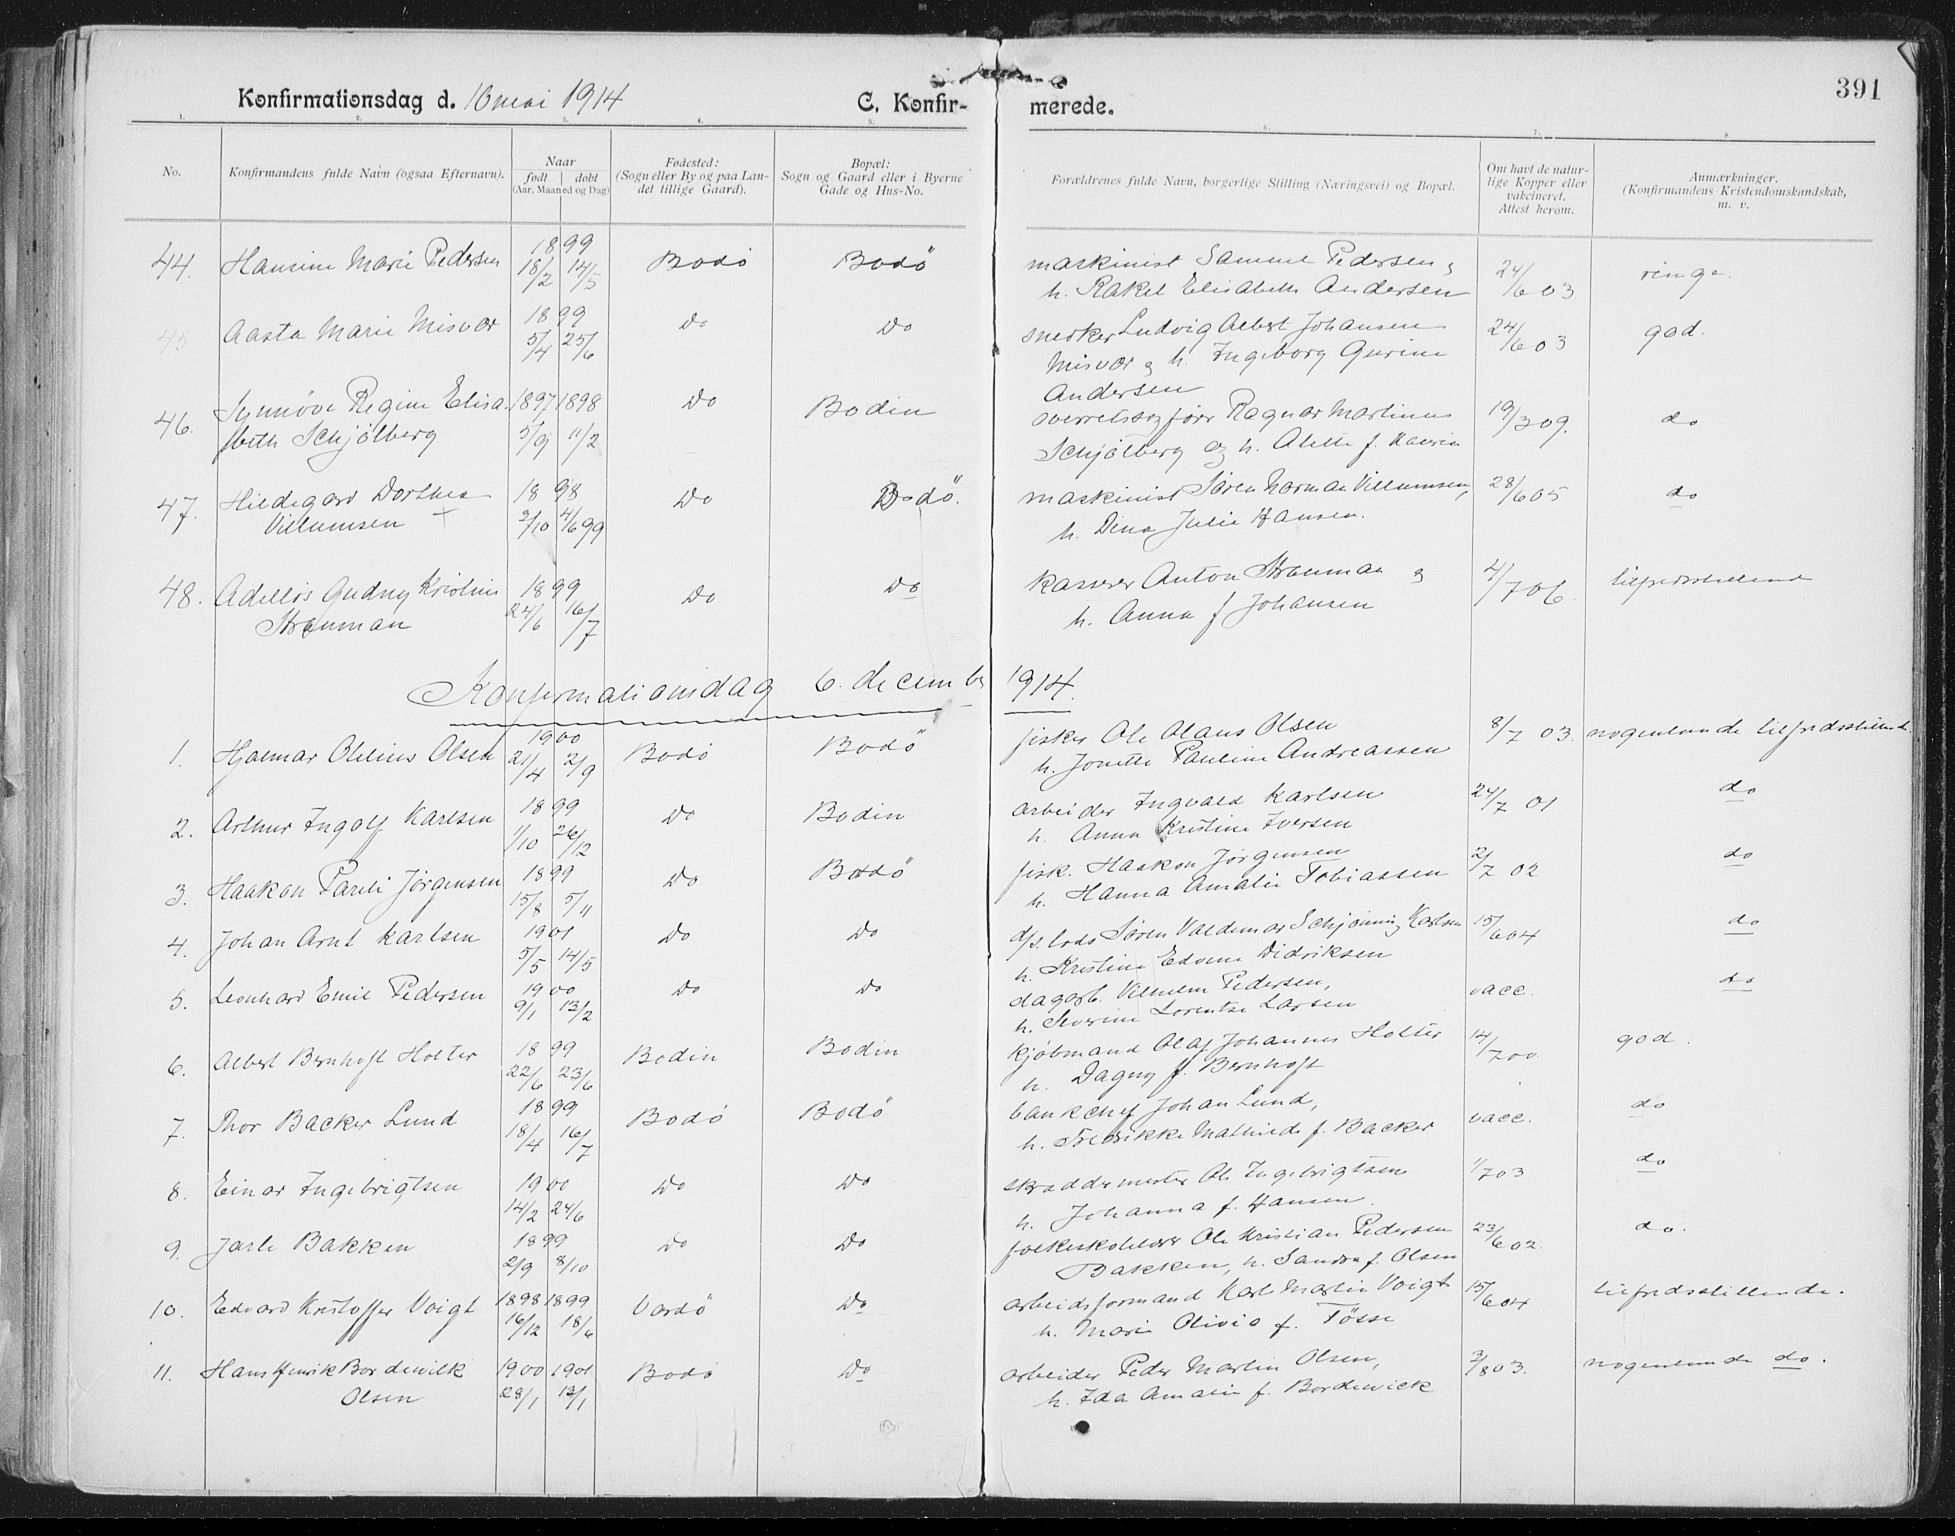 391
Konfirmationsdag d. 10 mai 1914 C. Konfir- merede.
1. 2. 3. 4. 5. 6. 7. 8.
No.
Konfirmandens fulde Navn (ogsaa Efternavn).
Naar
født døbt
(Aar, Maaned og Dag)
Fødested:
(Sogn eller By og paa Lan-
det tillige Gaard).
Bopæl:
Sogn og Gaard eller i Byerne
Gade og Hus-No.
Forældrenes fulde Navn, borgerlige Stilling (Næringsvei) og Bopæl.
Om havt de natur-
lige Kopper eller
vakcineret.
Attest herom.
Anmærkninger.
(Konfirmandens Kristendomskundskab,
m. v.
44. Hansine Marie Pedersen 1899 18/2 14/5 Bodö Bodö maskinist Samuel Pedersen &
h. Rakel Elisabeth Andersen 24/6 03 ringe.
45 Aasta Marie Misvær 1899 5/4 25/6 Do Do snekker Ludvig Albert Johansen
Misvær & h. Ingeborg Gurine
Andersen 24/6 03 god.
46. Synnöve Regine Elisa
beth Schjölberg 1897 1898 5/9 11/2 Do Bodin overretssagförer Ragnar Martinus
Schjölberg og h. Alette f. 19/3 09. do
47. Hildegard Dorthea
Villumsen 1898 2/10 4/6 99 Do Bodö. maskinist Sören Norman Villumsen,
h. Dina Julie Hansen. 28/6 05 do
48. Gudny Kristine
Strauman 1899 24/6 16/7 Do Do kasserer Anton Strauman &
h. Anna f Johansen 4/7 06 tilfredsstillende
Konfirmationsdag 6. december 1914.
1. Hjalmar Olelius Olsen 1900 21/4 2/9 Bodö Bodö fisker Ole Olaus Olsen
h. Jonette Pauline Andreassen 8/7 03. nogenlunde tilfredsstillende
2. Arthur Ingolf Karlsen 1899 1/10 26/12 Do Bodin arbeider Ingvald Karlsen
h. Anna Kristine Iversen 24/7 01 do
3. Haakon Pareli Jörgensen 1899 15/8 5/11 Do Bodö fisk. Haakon Jörgensen
h. Hanna Amalie Tobiassen 2/7 02 do
4. Johan Arnt Karlsen 1901 5/5 14/5 Do Do d/s. lods Sören Valdemar Schjönning Karlsen
h. Kristine Edvine Didriksen 15/6 04 do
5. Leonhard Emil Pedersen 1900 9/1 13/2 Do Do dagarb. Vilhelm Pedersen,
h. Severine Lorentse Larsen vacc. do
6. Albert Bernhoft Holter 1899 22/6 23/6 Bodin Bodin kjöbmand Olaf Johannes Holter
h. Dagny f. Bernhoft 14/7 00. god.
7. Thor Backer Lund 1899 18/4 16/7 Bodö Bodö bankchef Johan Lund,
h. Fredrikke Mathilde f. Backer vacc. do
8. Einar Ingebrigtsen 1900 14/2 24/6 Do Do skræddermester Ole Ingebrigtsen
h. Johanna f. Hansen. 1/7 03 do
9. Jarle Bakken 1899 2/9 8/10 Do Do folkeskolelærer Ole Kristian Pedersen
Bakken, h. Sandra f. Olsen 23/6 02. do.
10. Edvard Kristoffer Voigt 1898 1899 16/12 18/6 Vardö Do arbeidsformand Karl Martin Voigt
h. Marie Olivia f. Tösse 15/6 04 tilfredsstillende.
11. Hans Henrik Bordewick
Olsen 1900 1901 28/1 13/1 Bodö Do arbeider Peder Martin Olsen,
h. Ida Amalie f. Bordewick 3/8 03. nogenlunde do.